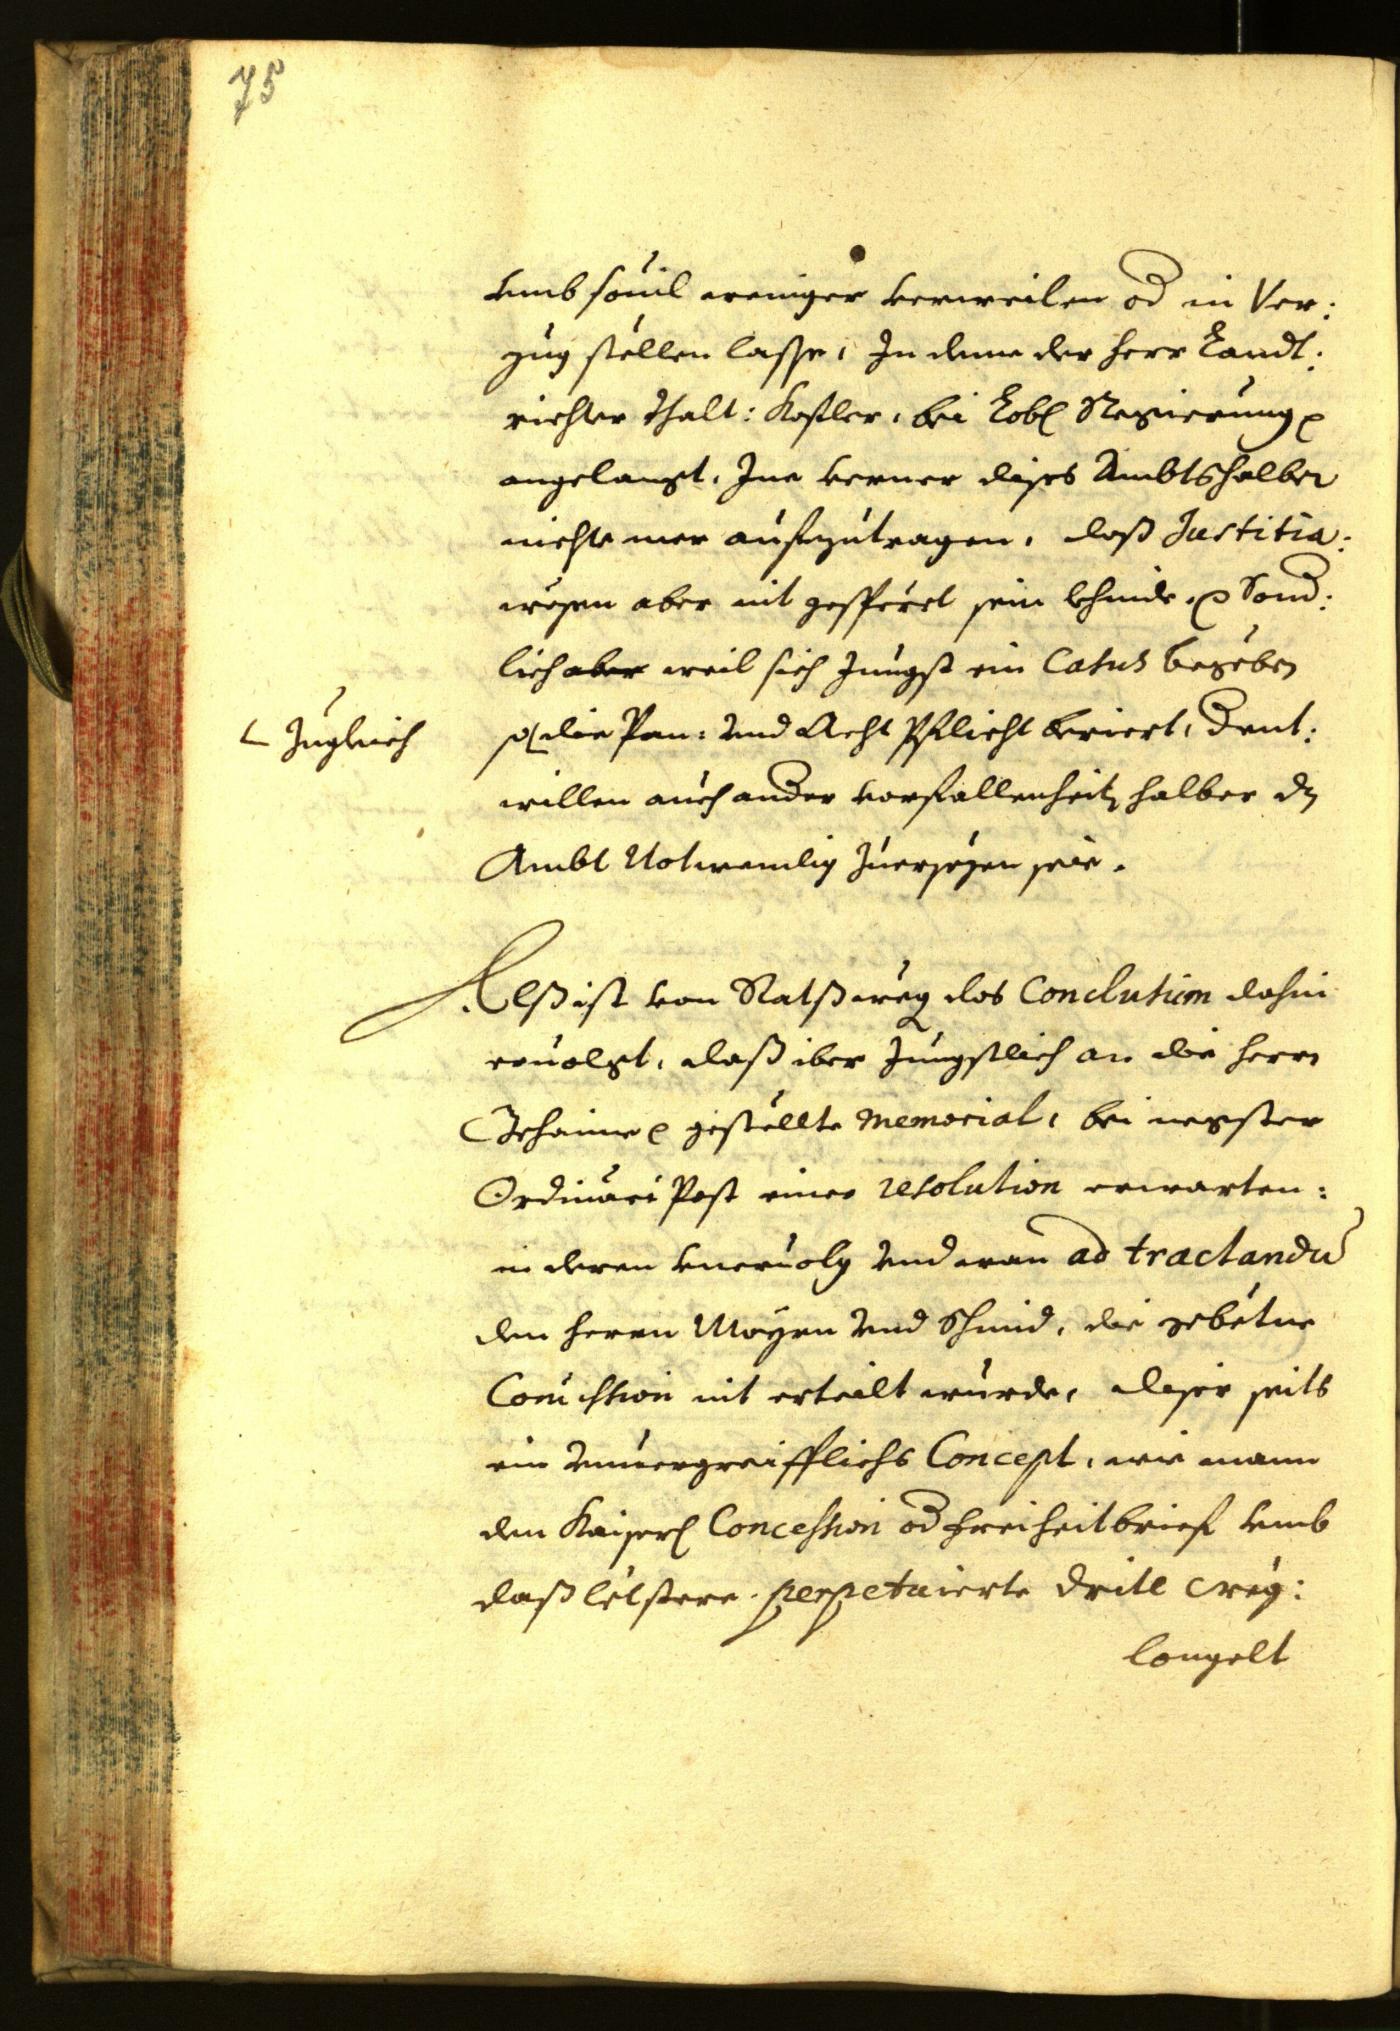 75
vmb souil weniger verweilen od in Ver:
zug stellen lasse, In deme der Herr Landt:
richter Thalt: Kofler, bei Lobl Regierung
angelangt, Ine verner dises Ambts halber
nichts mer aufzutragen, daß Justitia:
wesen aber nit gesperet sein khinde, Sond:
lich aber weil sich Jungst ein Casus begeben
Zugleich
so die Pan: vnd Acht Pflicht beriert, Dent:
willen auch ander vorfallenheit halber dz
Ambt Notwendig zuersezen seie.
Alß ist von Ratß weg das Conclusum dahin
eruolgt, daß iber Jungstlich an die Herrn
Gehaime gestellte Memorial, bei negster
Ordinari Post einer resolution erwarten:
in deren eneruolg vnd wan ad tractandu
den Herrn Mayrn vnd Schmid, die gebetne
Comission nit erteilt wurde, diser seits
ein vnuergreifflichs Concept, wie mann
den Kaiserl Concession od Freiheitbrief vmb
daß letstere perpetuierte Drite Creiz:
longelt